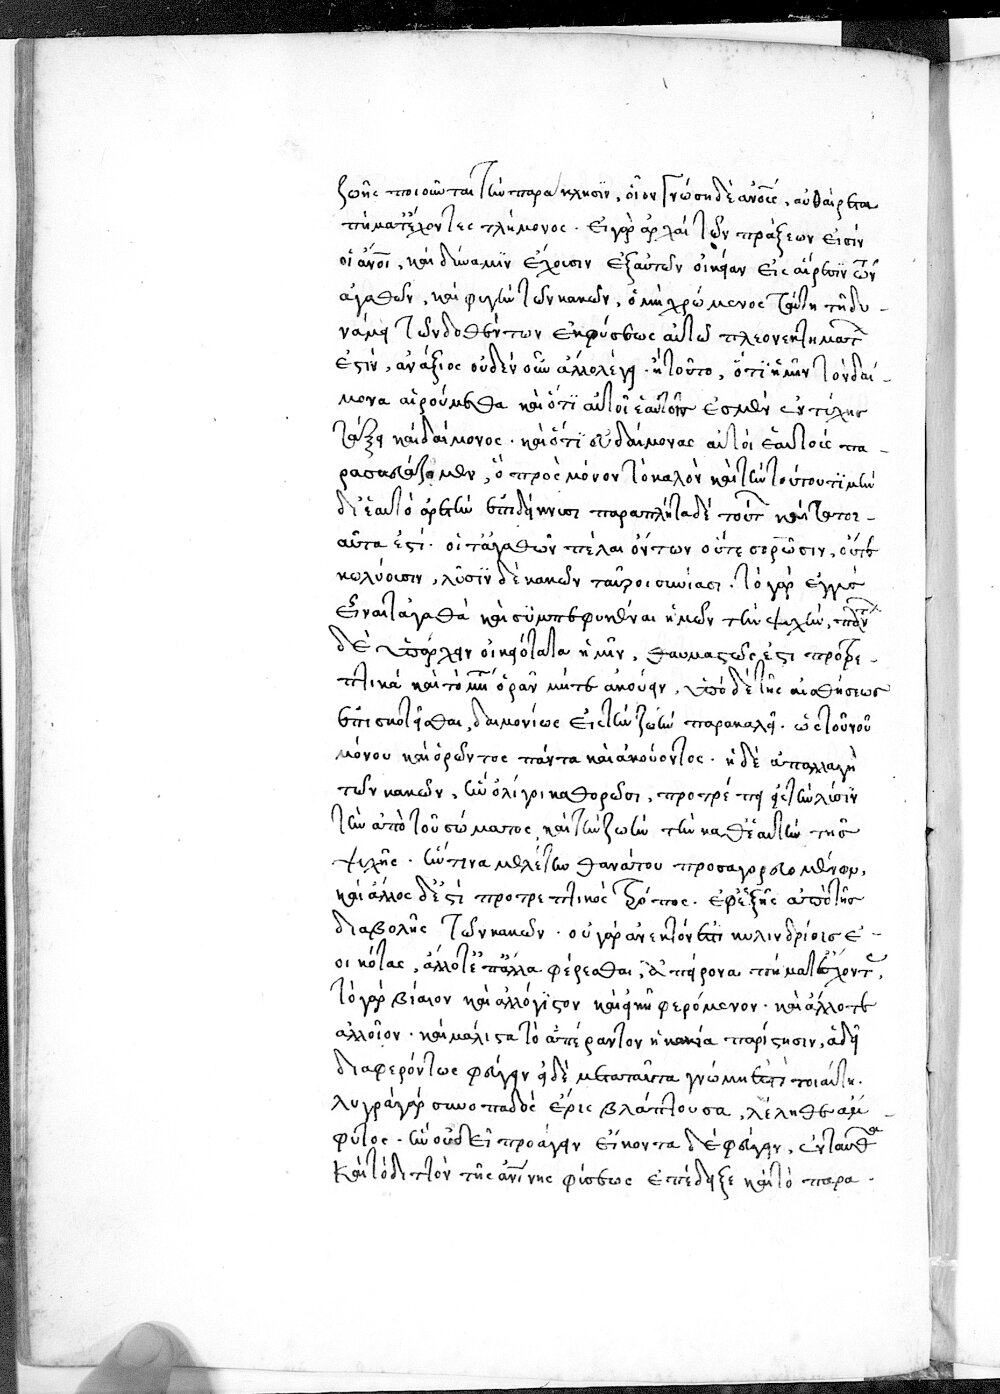 ζωῆς ποιοῦνται τὴν παράκλησϊν, οἷον γνώσῃ δὲ ἀνο̅υς, αὐθαίρετα
πήματ' ἔχοντες τλήμονος. εἰ γὰρ ἀρχαὶ τῶν πράξεων εἰσὶν
οἱ ἄνο̅ι, καὶ δύναμϊν ἔχουσιν ἐξ αὐτῶν οἰκείαν εἰς αἵρεσϊν τῶν
ἀγαθῶν, καὶ φυγὴν τῶν κακῶν, ὁ μὴ χρώμενος ταύτῃ τῇ δυ-
νάμει τῶν δοθέντων ἐκ φύσεως αὐτῷ πλεονεκτημάτ
ἐστὶν, ἀνάξιος οὐδὲν οὖν ἄλλο λέγει. ἢ τοῦτο, ὅτι ἡμῖν τὸν δαί-
μονα αἱρούμεθα καὶ ὅτϊ αὐτοὶ ἑαυτοῖς ἐσμὲν ἐν τύχης
τάξει καὶ δαίμονος. καὶ ὅτϊ εὐδαίμονας αὐτοὶ ἑαυτοὺς πα-
ρασκευάζομεν, ὃ πρὸς μόνον τὸ καλὸν καὶ τὴν τούτου τϊμὴν
δι' ἑαυτὸ ἀρετὴν ἐπιδείκνυσι παραπλήσια δὲ τούτ καὶ τὰ τοι-
αῦτα ἐστί. οἵ τ' ἀγαθῶν πέλας ὄντων οὔτε ἐσορῶσιν, οὔτε
κλύουσιν, λύσϊν δὲ κακῶν παῦροι συνίασι. τὸ γὰρ ἐγγὺς
εἶναι τἀγαθὰ καὶ συμπεφυκέναι ἡμῶν τὴν ψυχὴν, πάντ
δὲ ὑπάρχειν οἰκειότατα ἡμῖν, θαυμαστῶς ἐστι προτρε-
πτικά καὶ τὸ μὴ ὁρᾶν μήτε ἀκούειν, ὑπὸ δὲ τῆς αἰσθήσεως
ἐπισκοτεῖσθαι, δαιμονίως εἰς τὴν ζωὴν παρακαλεῖ. ὡς τοῦ νοῦ
μόνου καὶ ὁρῶντος πάντα καὶ ἀκούοντος. ἡ δὲ ἀπαλλαγὴ
τῶν κακῶν, ἣν ὀλίγοι καθορῶσι, προτρέπει εἰς τὴν λύσϊν
τὴν ἀπὸ τοῦ σώματος, καὶ τὴν ζωὴν τὴν καθ' ἑαυτὴν τῆς
ψυχῆς. ἥντινα μελέτην θανάτου προσαγορεύομεν,
καὶ ἄλλος δ' ἐστὶ προτρεπτικὸς τρόπος. ἐφεξῆς ἀπὸ τῆς
διαβολῆς τῶν κακῶν. οὐ γὰρ ἀνεκτὸν ἐπὶ κυλινδρίοις ἐ-
οικότας, ἄλλοτ' ἐπ' ἄλλα φέρεσθαι, ἀπείρονα πήματ' ἔχοντ,
τὸ γὰρ βίαιον καὶ ἀλόγϊστον καὶ εἰκῆ φερόμενον. καὶ ἄλλοτε
ἀλλοῖον. καὶ μάλιστα τὸ ἀπέραντον ἡ κακία παρίστησιν, ἃ δεῖ
διαφερόντως φεύγειν εἰ δὲ μεταπαῦτα γνώμη ἐπὶ τοιαύτη.
λυγρὰ γὰρ συνοπαδὸς ἔρις βλάπτουσα, λέληθε σύμ-
φυτος. ἣν οὐ δεῖ προάγειν εἴκοντα δὲ φεύγειν, ἐνταῦθα
καὶ τὸ διττὸν τῆς ἀνίνης φύσεως ἐπέδειξε καὶ τὸ παρα-